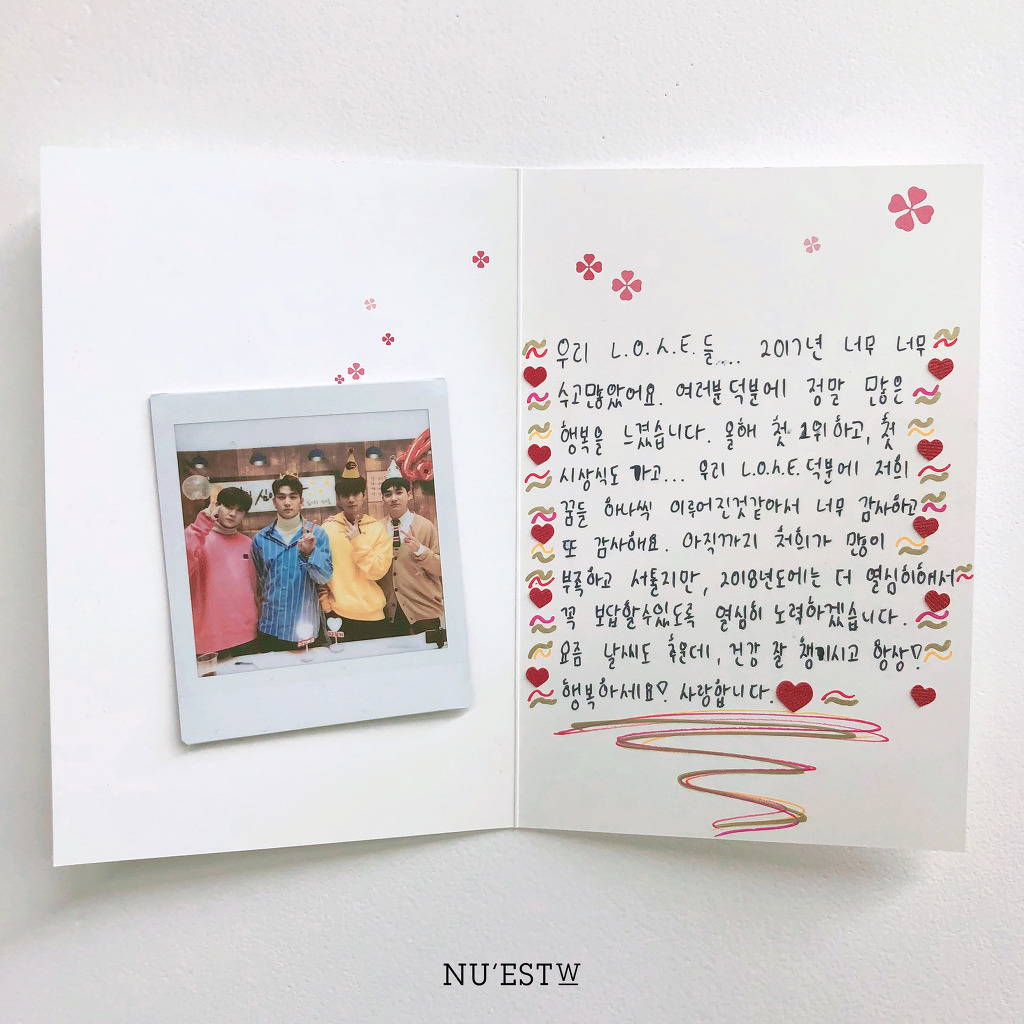 우리 L.O.Λ.E.들... 2017년 너무 너무
수고많았어요. 여러분덕분에 정말 많은
행복을 느꼈습니다. 올해 첫 1위하고, 첫
시상식도 가고... 우리 L.O.Λ.E.덕분에 저희
꿈들 하나씩 이루어진것같아서 너무 감사하고
또 감사해요. 아직까지 저희가 많이
부족하고 서툴지만, 2018년도에는 더 열심히해서
꼭 보답할수있도록 열심히 노력하겠습니다.
요즘 날씨도 추운데, 건강 잘 챙기시고 항상♡
행복하세요♡ 사랑합니다.
NU'EST W